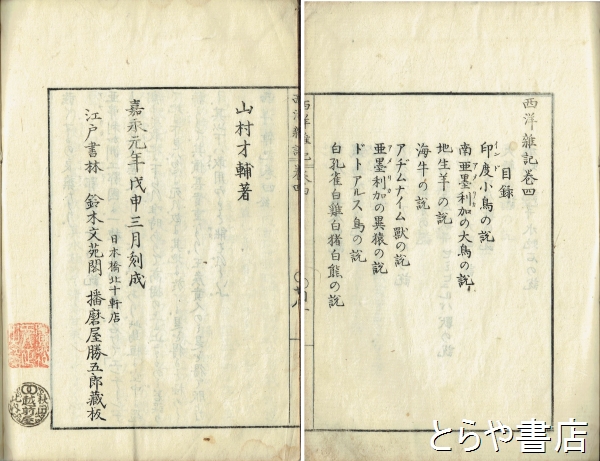 西洋雜記卷四
目録
印度小鳥の説
インド
南亜墨利加の大鳥の説
アメリカ
地生羊の説
海牛の説
アヂムナイム獸の説
亜墨利加の異猿の説
ドトアルス鳥の説
白孔雀白雞白猪白熊の説
西洋雜記 卷四
山村才輔著
嘉永元年戊申三月刻成
日本橋北十軒店
江戸書林 鈴木文苑閣 播磨屋勝五郎藏板
越前屋
とらや書店